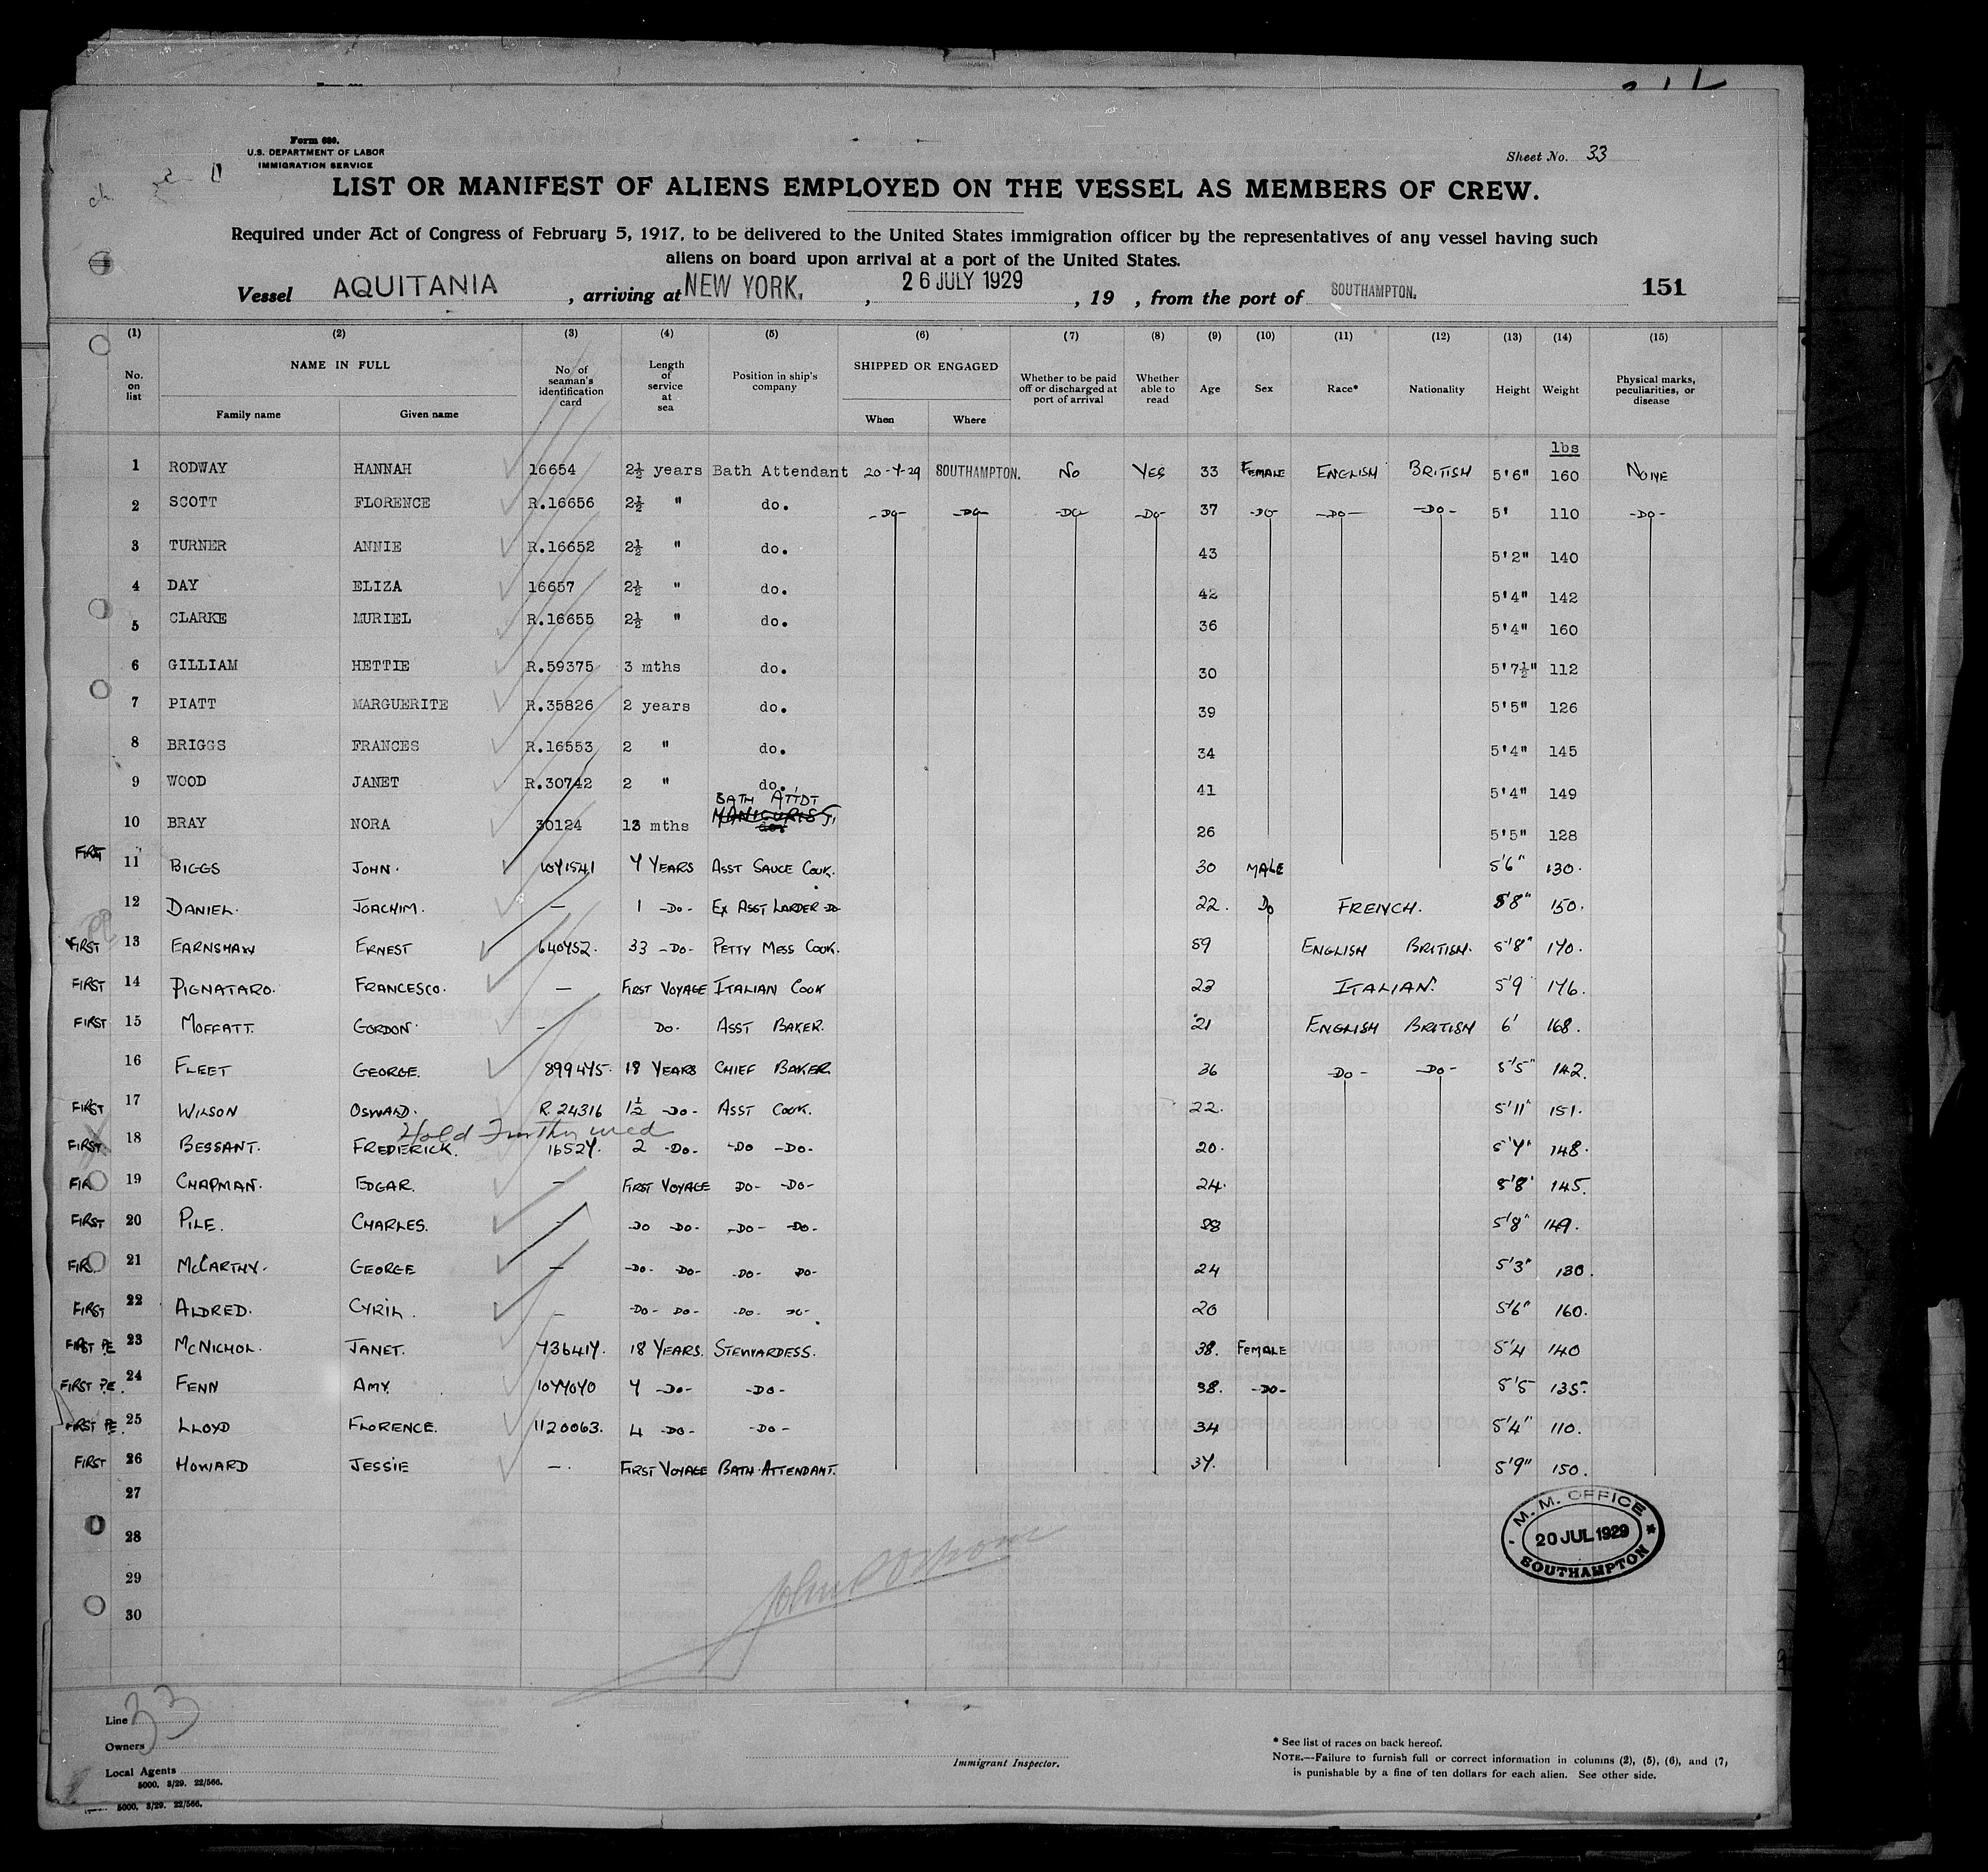 Form 680.
U.S. DEPARTMENT OF LABOR
IMMIGRATION SERVICE
Sheet No. 33
LIST OR MANIFEST OF ALIENS EMPLOYED ON THE VESSEL AS MEMBERS OF CREW.
Required under Act of Congress of February 5, 1917, to be delivered to the United States immigration officer by the representatives of any vessel having such
aliens on board upon arrival at a port of the United States.
Vessel AQUITANIA , arriving at NEW YORK. , 26 JULY 1929 , 19 , from the port of SOUTHAMPTON. 151
(1) (2) (3) (4) (5) (6) (7) (8) (9) (10) (11) (12) (13) (14) (15)
No. on list NAME IN FULL Family name Given name No. of seaman's identification card Length of service at sea Position in ship's company SHIPPED OR ENGAGED When Where Whether to be paid off or discharged at port of arrival Whether able to read Age Sex Race* Nationality Height Weight Physical marks, peculiarities, or disease
lbs
1 RODWAY HANNAH 16654 2½ years Bath Attendant 20-7-29 SOUTHAMPTON. No YES 33 FEMALE ENGLISH BRITISH 5'6" 160 NONE
2 SCOTT FLORENCE R.16656 2½ " do. -DO- -DO- -DO- -DO- 37 -DO- -DO- -DO- 5' 110 -DO-
3 TURNER ANNIE R.16652 2½ " do. 43 5'2" 140
4 DAY ELIZA 16657 2½ " do. 42 5'4" 142
5 CLARKE MURIEL R.16655 2½ " do. 36 5'4" 160
6 GILLIAM HETTIE R.59375 3 mths do. 30 5'7½" 112
7 PIATT MARGUERITE R.35826 2 years do. 39 5'5" 126
8 BRIGGS FRANCES R.16553 2 " do. 34 5'4" 145
9 WOOD JANET R.30742 2 " do. 41 5'4" 149
BATH ATTDT
10 BRAY NORA 30124 13 mths MANICURIST. do. 26 5'5" 128
FIRST 11 BIGGS JOHN. 1071541 7 YEARS ASST SAUCE COOK. 30 MALE 5'6" 130.
12 DANIEL. JOACHIM. — 1 -DO- EX ASST LARDER DO 22. DO FRENCH. 5'8" 150.
FIRST 13 EARNSHAW ERNEST 640752. 33 -DO- PETTY MESS COOK. 59 ENGLISH BRITISH. 5'8" 170.
FIRST 14 PIGNATARO. FRANCESCO. — FIRST VOYAGE ITALIAN COOK 23 ITALIAN. 5'9 176.
FIRST 15 MOFFATT. GORDON — DO. ASST BAKER. 21 ENGLISH BRITISH 6' 168.
16 FLEET GEORGE. 899475. 18 YEARS CHIEF BAKER 36 -DO- -DO- 5'5" 142.
FIRST 17 WILSON OSWALD. R.24316 1½ -DO- ASST COOK. 22. 5'11" 151.
Hold Further med
FIRST. 18 BESSANT. FREDERICK. 16527. 2 -DO- -DO -DO- 20. 5'7" 148.
FIR 19 CHAPMAN. EDGAR. — FIRST VOYAGE DO- -DO- 24. 5'8' 145.
FIRST 20 PILE. CHARLES. — -DO -DO- -DO- -DO- 28 5'8" 149.
FIR 21 MCCARTHY. GEORGE — -DO- DO- -DO- DO- 24 5'3" 130.
FIRST 22 ALDRED. CYRIL. — -DO- DO- -DO- DO- 20 5'6" 160.
FIRST PE 23 MCNICHOL. JANET. 736417. 18 YEARS. STEWARDESS. 38. FEMALE 5'4 140
FIRST PE. 24 FENN AMY. 1077070 7 -DO- -DO- 38. -DO- 5'5 135.
FIRST PE. 25 LLOYD FLORENCE. 1120063. 4 -DO- -DO- 34 5'4" 110.
FIRST 26 HOWARD JESSIE —. FIRST VOYAGE BATH ATTENDANT. 37. 5'9" 150.
27
28
29
30
M. M. OFFICE
20 JUL 1929
SOUTHAMPTON
33
Line
Owners
Local Agents
5000. 3/29. 22/566.
5000. 3/29. 22/566.
Immigrant Inspector.
* See list of races on back hereof.
NOTE.—Failure to furnish full or correct information in columns (2), (5), (6), and (7,
is punishable by a fine of ten dollars for each alien. See other side.